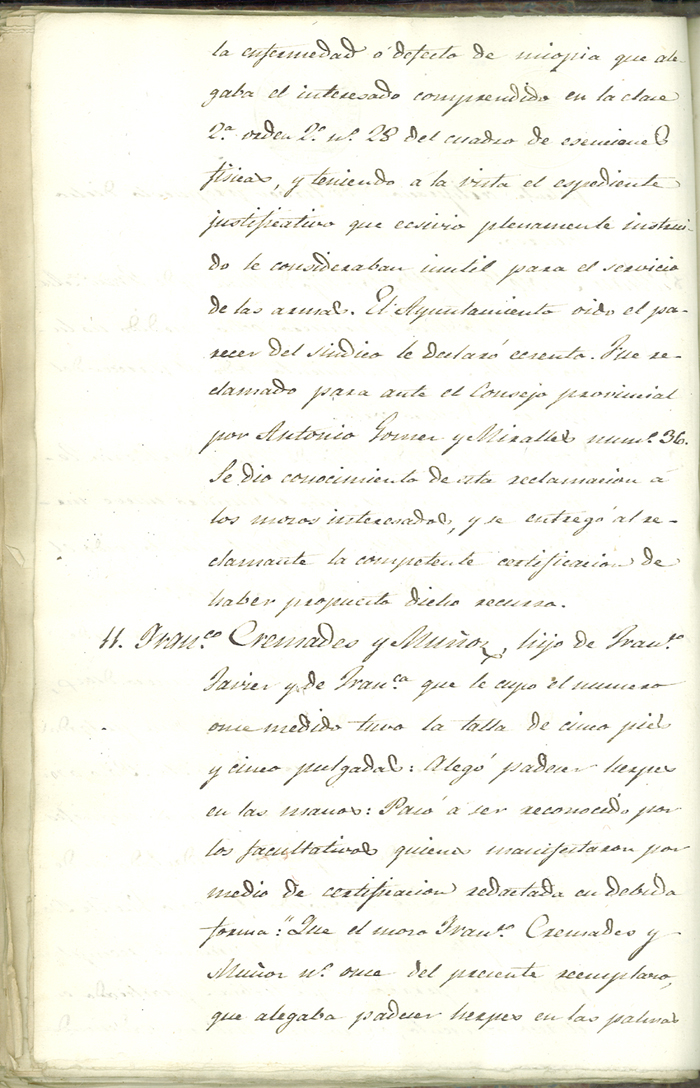 la enfermedad ó defecto de miopia que ale-
gaba el interesado comprendido en la clase
2.ª orden 2.º n.º 28 del cuadro de esenciones
fisicas, y teniendo á la vista el espediente
justificativo que ecsivio plenamente instrui-
do le consideraban inutil para el servicio
de las armas. El Ayuntamiento oido el pa-
recer del sindico le declaró ecsento. Fue re-
clamado para ante el Consejo provincial
por Antonio Gomez y Miralles num.º 36.
Se dio conocimiento de esta reclamacion á
los mozos interesados, y se entregó al re-
clamante la competente certificacion de
haber propuesto dicho recurso.
11. Fran.co Cremades y Muñoz, hijo de Fran.co
Javier y de Fran.ca que le cupo el numero
once medido tuvo la talla de cinco pies
y cinco pulgadas: Alegó padecer herpes
en las manos: Pasó á ser reconocido por
los facultativos quienes manifestaron por
medio de certificacion redactada en debida
forma: "Que el mozo Fran.co Cremades y
Muñoz n.º once del presente reemplazo,
que alegaba padecer herpes en las palmas